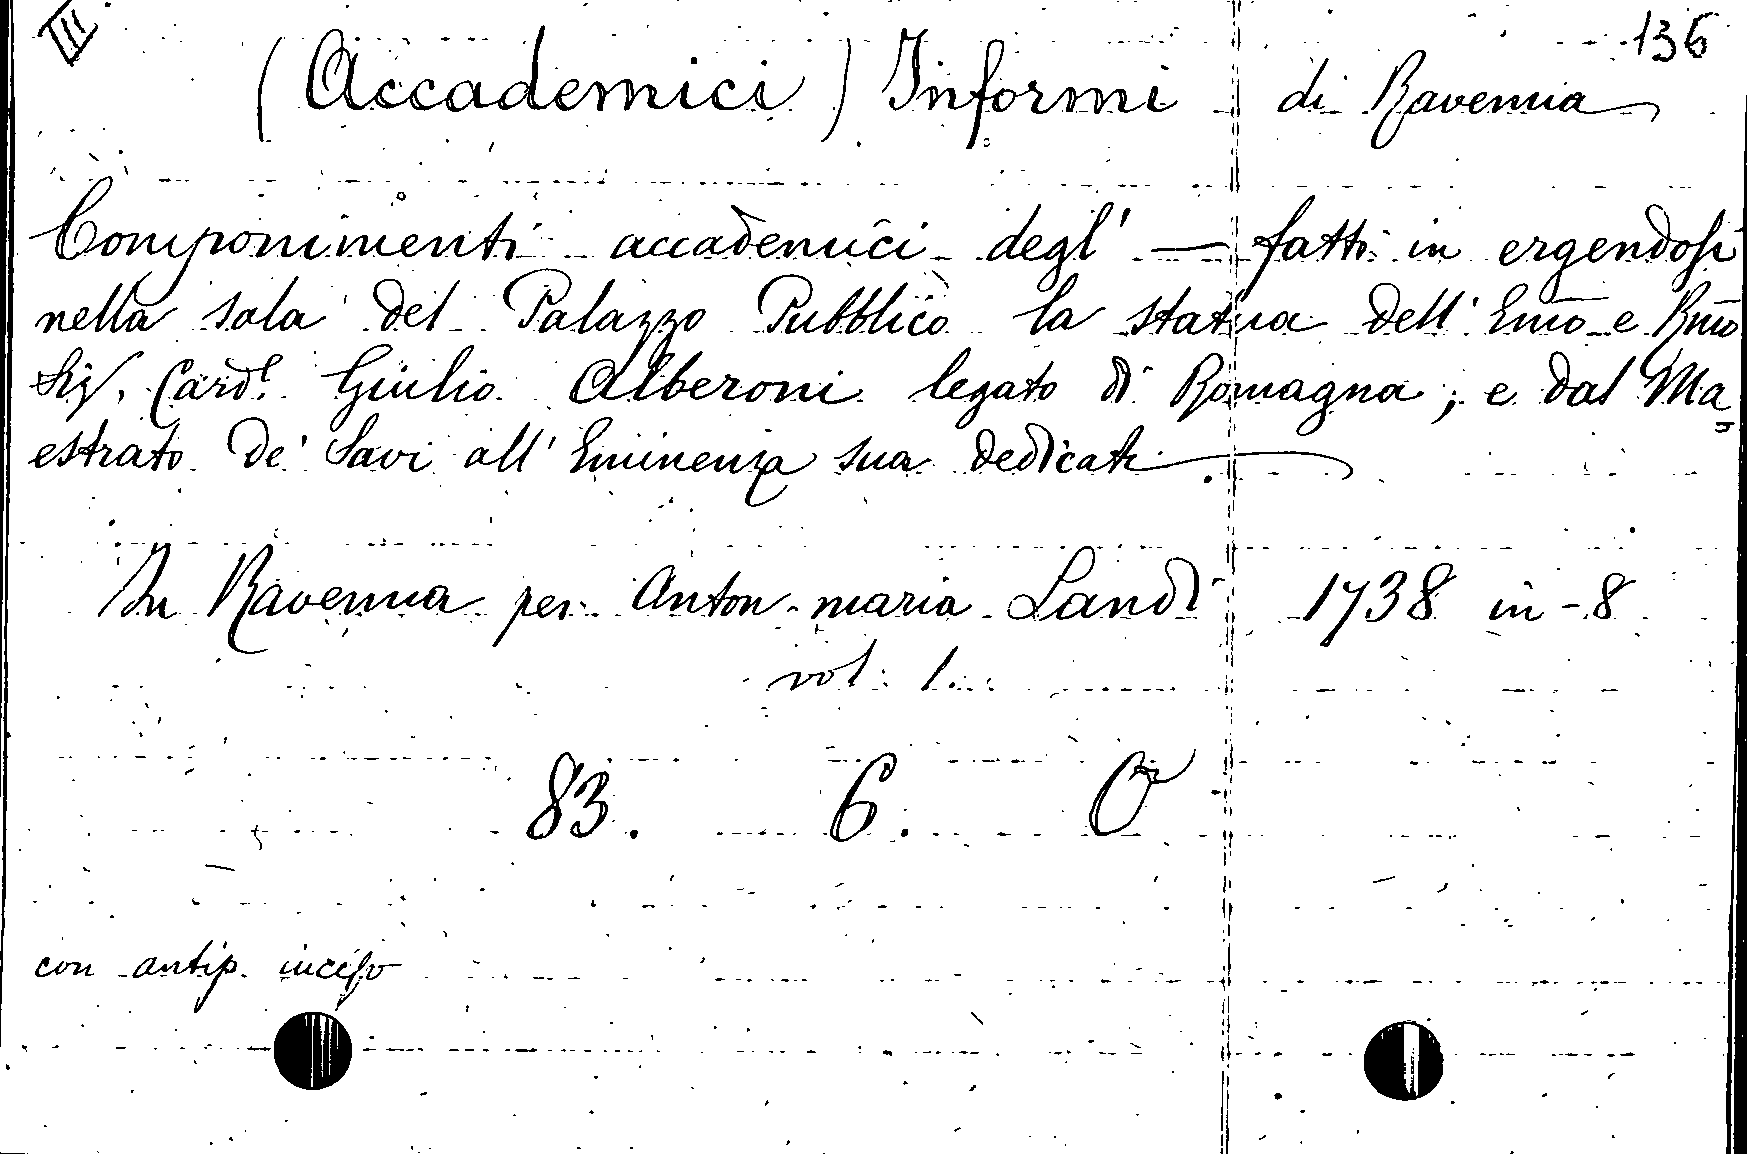 III
136
(Accademici) Informi di Ravenna
Componimenti accademici degl' — fatti in ergendosi
nella sala del Palazzo Pubblico la statua dell' Emo e Rmo
Sig. Cardl. Giulio Alberoni legato di Romagna, e dal Ma
estrato de' Savi all' Eminenza sua dedicati
In Ravenna per Anton-maria Landi 1738 in-8
vol. 1.
83. 6. O
con antip. inciso